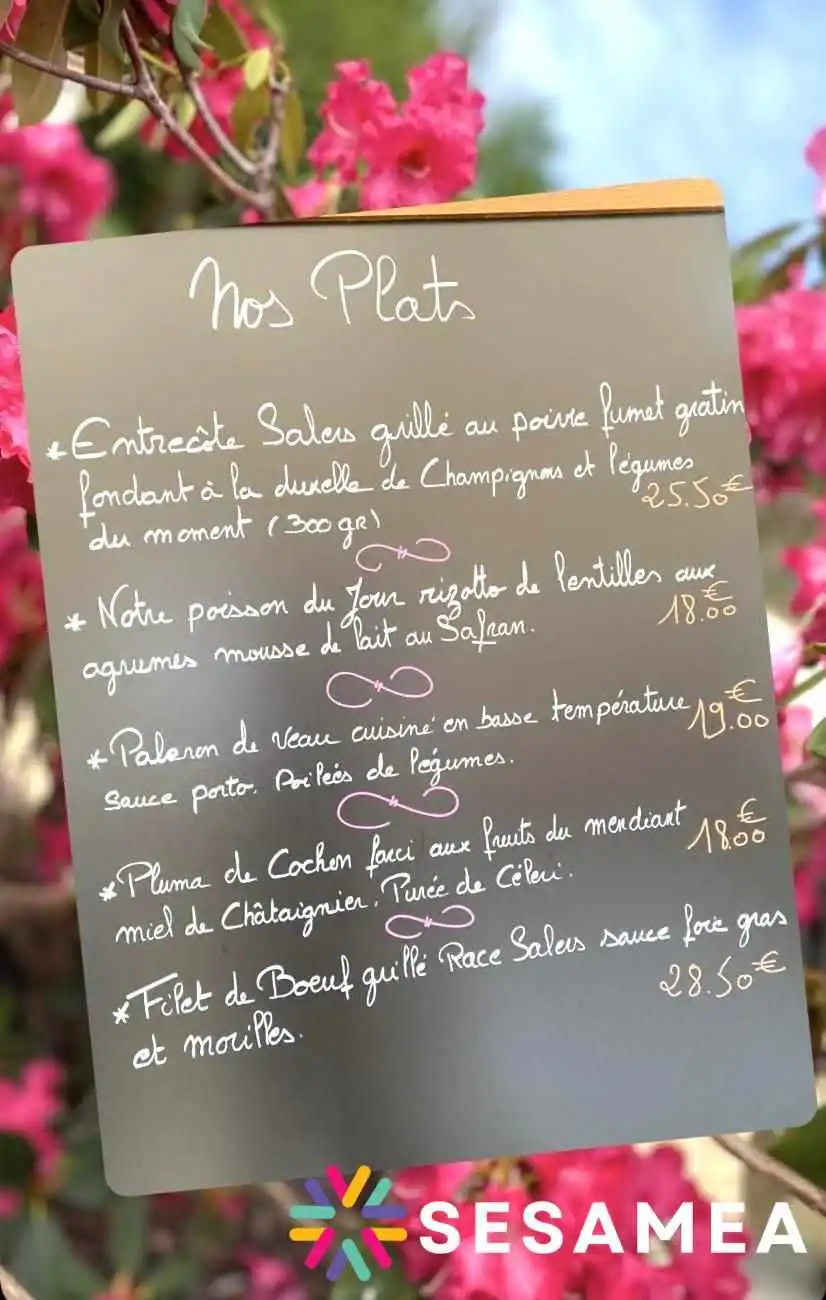 Nos Plats
* Entrecôte Salers grillé au poivre fumet gratin
fondant à la duxelle de Champignons et légumes
25.50€
du moment (300gR)
* Notre poisson du Jour rizotto de lentilles aux
18.00€
agrumes mousse de lait au Safran.
* Paleron de veau cuisiné en basse température
19.00€
Sauce porto. Poilées de légumes.
* Pluma de Cochon farci aux fruits du mendiant
18.00€
miel de Châtaignier. Purée de Céleri.
* Filet de Boeuf guillé Race Salers sauce foie gras
28.50€
et morilles.
SESAMEA